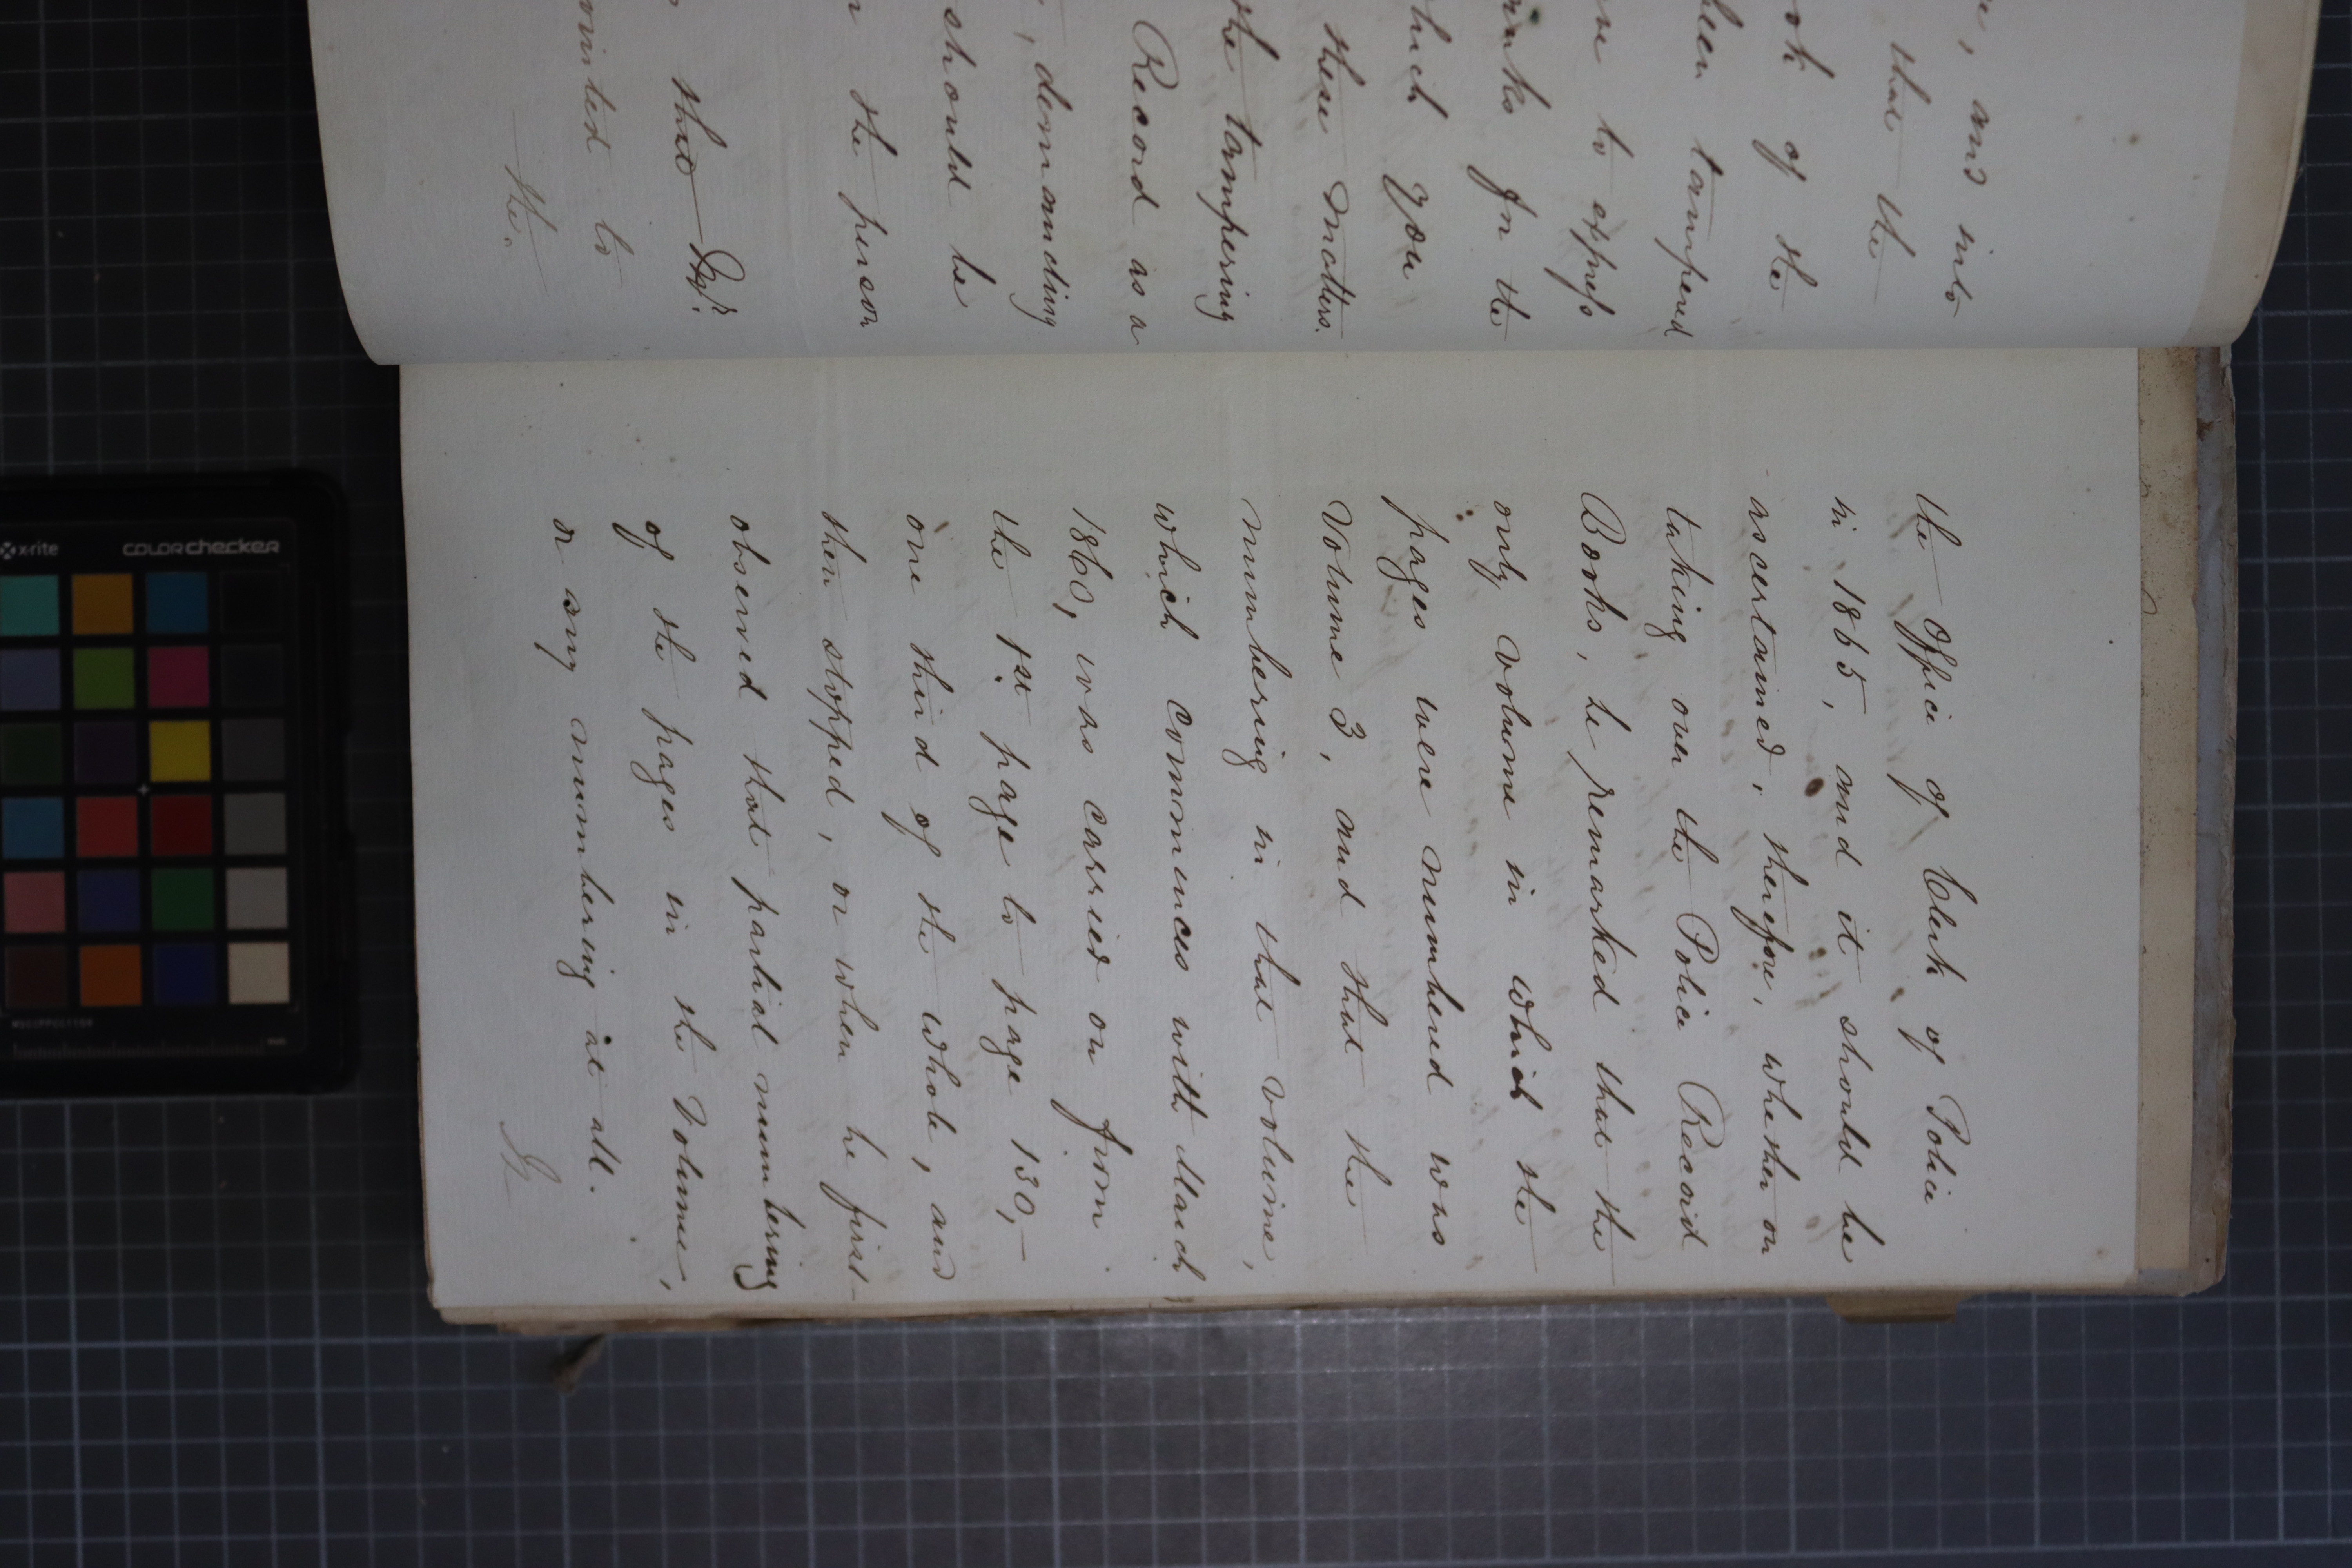 e, and into
that the
ook of the
been tampered
me to express
anks for the
which you
these matters.
the tampering
Record as a
, demanding
should be
n the person
that
ointed to
the.
the Office of Clerk of Police
in 1865, and it should be
ascertained, therefore, whether on
taking over the Police Record
Books, he remarked that the
only volume in which the
pages were numbered was
Volume 3, and that the
numbering in that volume,
which commences with March
1860, was carried on from
the 1st page to page 130,-
one third of the whole, and
then stopped, or when he first
observed that partial numbering
of the pages in the Volume,
or any numbering at all.
x-rite
COLORchecker